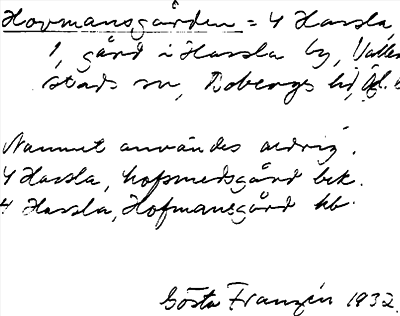 Hovmansgården = 4 Hassla,
1, gård i Hassla by, Vallers-
stads sn, Bobergs hd, Ög.
Namnet användes aldrig.
4 Hassla, hofmedsgård bek.
4 Hassla, Hofmansgård kb.
Gösta Franzén 1932.